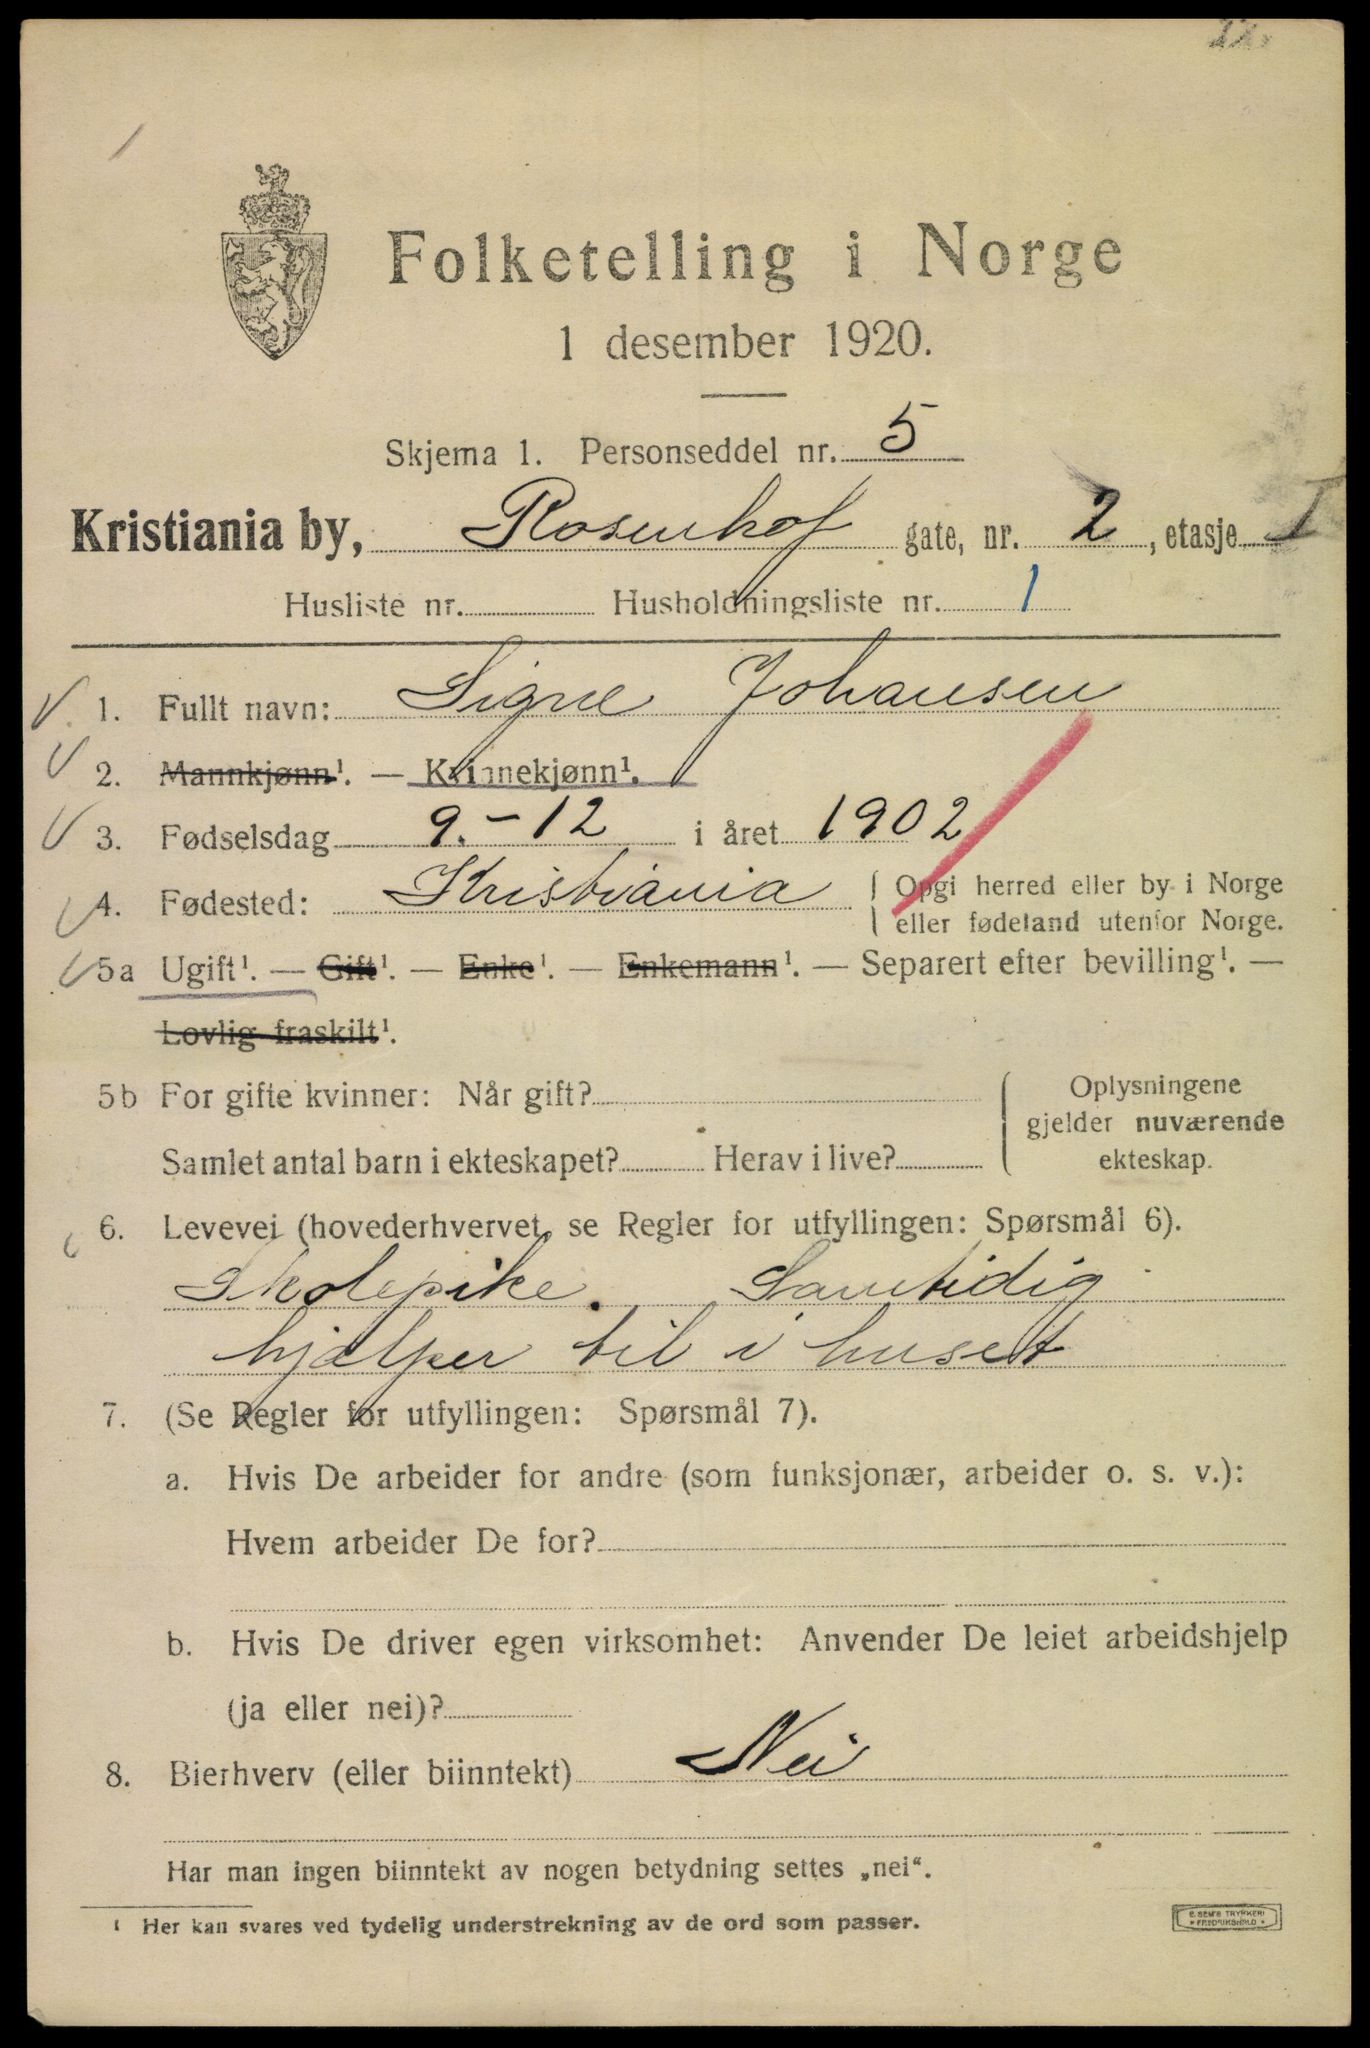 22.
Folketelling i Norge
1 desember 1920.
Skjema 1. Personseddel nr. 5
Kristiania by, Rosenhof gate, nr. 2, etasje I
Husliste nr. Husholdningsliste nr. 1
1. Fullt navn: Signe Johansen
2. Mannkjønn¹. — Kvinnekjønn¹.
3. Fødselsdag 9.-12 i året 1902
4. Fødested: Kristiania Opgi herred eller by i Norge
eller fødeland utenfor Norge.
5a Ugift¹. — Gift¹. — Enke¹. — Enkemann¹. — Separert efter bevilling¹. —
Lovlig fraskilt¹.
5b For gifte kvinner: Når gift?
Oplysningene
gjelder nuværende
ekteskap.
Samlet antal barn i ekteskapet? Herav i live?
6. Levevei (hovederhvervet, se Regler for utfyllingen: Spørsmål 6).
Skolepike. Samtidig
hjælper til i huset
7. (Se Regler for utfyllingen: Spørsmål 7).
a. Hvis De arbeider for andre (som funksjonær, arbeider o. s. v.):
Hvem arbeider De for?
b. Hvis De driver egen virksomhet: Anvender De leiet arbeidshjelp
(ja eller nei)?
8. Bierhverv (eller biinntekt) Nei
Har man ingen biinntekt av nogen betydning settes „nei“.
¹ Her kan svares ved tydelig understrekning av de ord som passer.
E. SEM'S TRYKKERI
• FREDRIKSHALD •